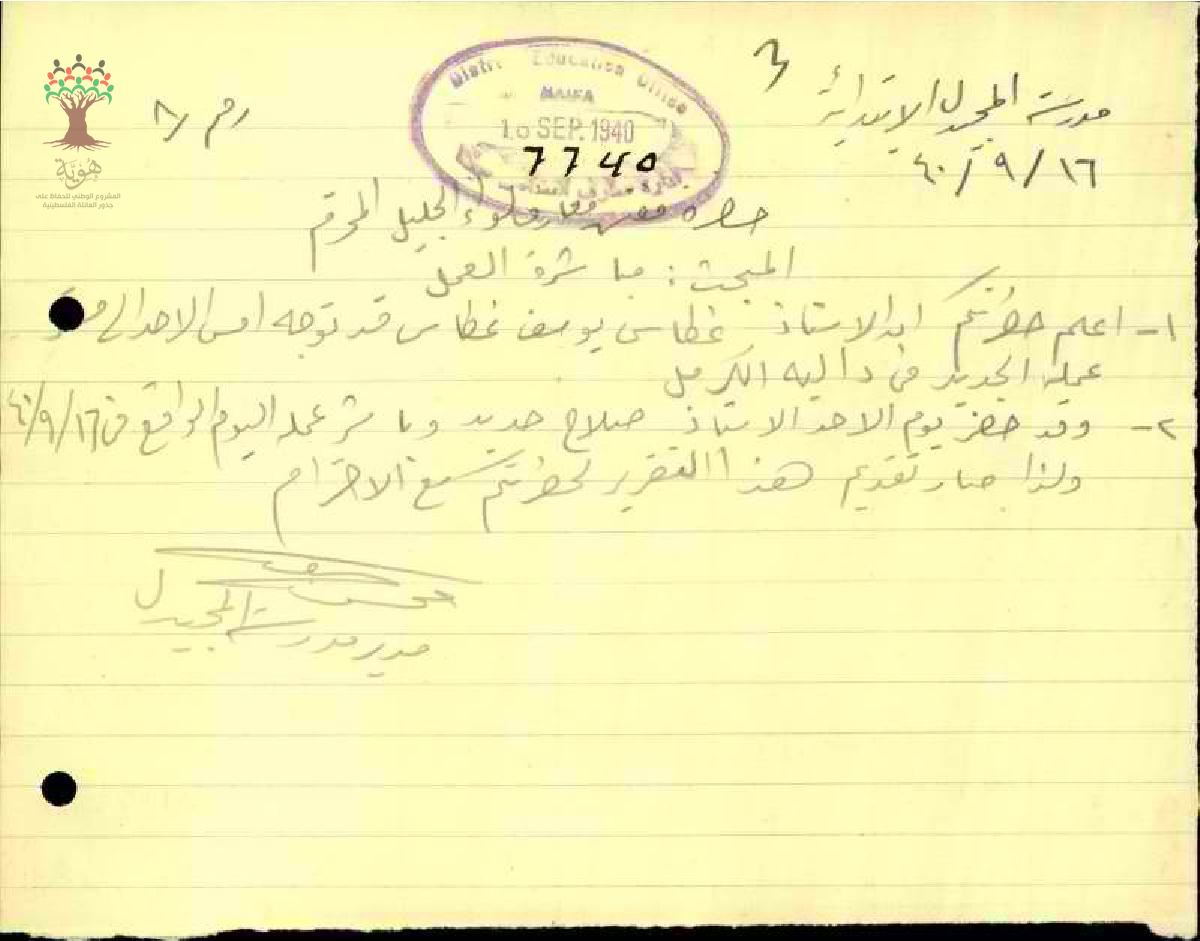 مدرسة المجيدل الابتدائية
٤٠/٩/١٦
رقم ٨
District Education Office
HAIFA
16 SEP. 1940
7740
هُويّة
المشروع الوطني للحفاظ على
جذور العائلة الفلسطينية
حضرة مفتش معارف لواء الجليل المحترم
المبحث : مباشرة العمل
١- اعلم حضرتكم ان الاستاذ غطاس يوسف غطاس قد توجه امس الاحد الى
عمله الجديد في دالية الكرمل
٢- وقد حضر يوم الاحد الاستاذ صلاح حديد وباشر عمله اليوم الواقع في ٤٠/٩/١٦
ولذا صار تقديم هذا التقرير لحضرتكم مع الاحترام
مدير مدرسة المجيدل